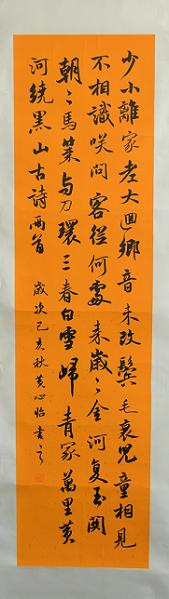 少小離家老大回鄉音未改鬢毛衰兒童相見
不相識咲問客從何處来歲〻金河復玉関
朝〻馬策与刀環三春白雪歸青冢萬里黄
河繞黑山古詩兩首 歲次己亥秋黄心怡書之